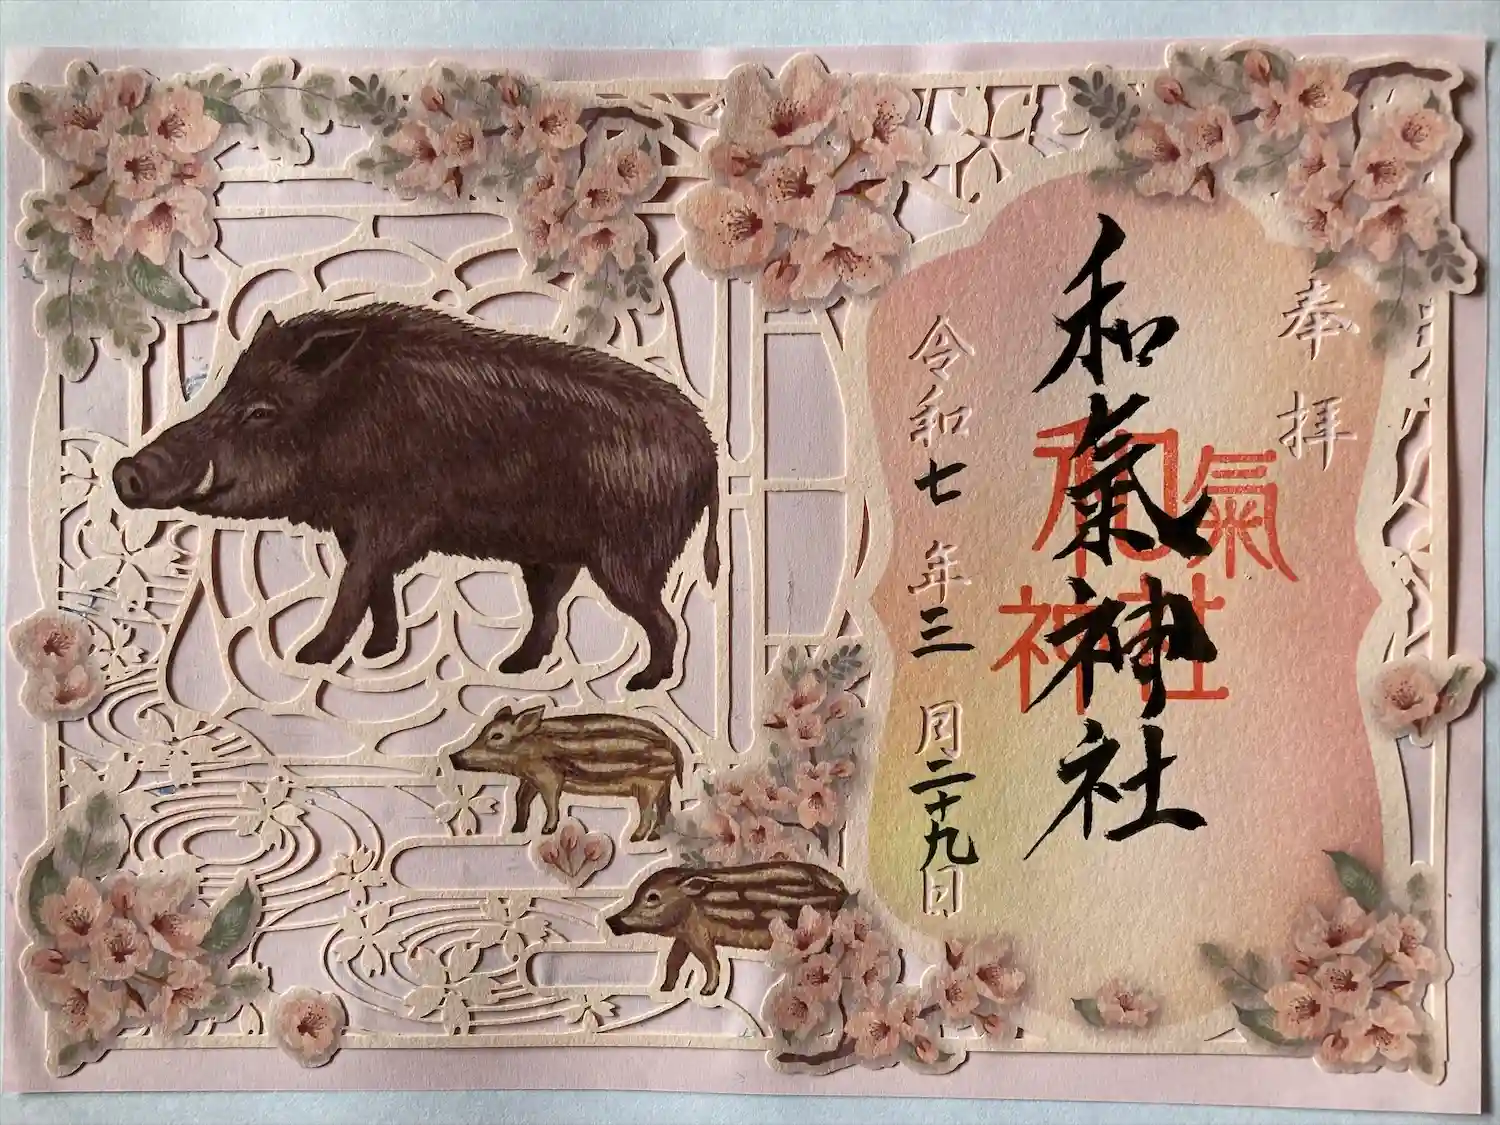 奉拝
和氣神社
和氣
神社
令和七年三月二十九日